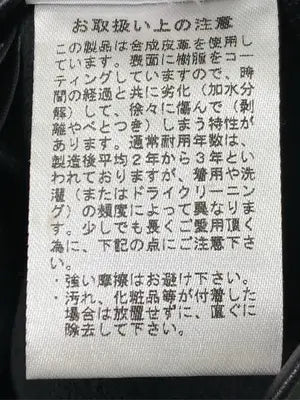 お取扱い上の注意
この製品は合成皮革を使用し
ています。表面に樹脂をコー
ティングしていますので、時
間の経過と共に劣化(加水分
解)して、徐々に傷んで(剥
離やべとつき)しまう特性が
あります。通常耐用年数は、
製造後平均2年から3年とい
われておりますが、着用や洗
濯(またはドライクリーニン
グ)の頻度によって異なりま
す。少しでも長くご愛用頂く
為に、下記の点にご注意下さ
い。
・強い摩擦はお避け下さい。
・汚れ、化粧品等が付着した
場合は放置せずに、直ぐに
除去して下さい。